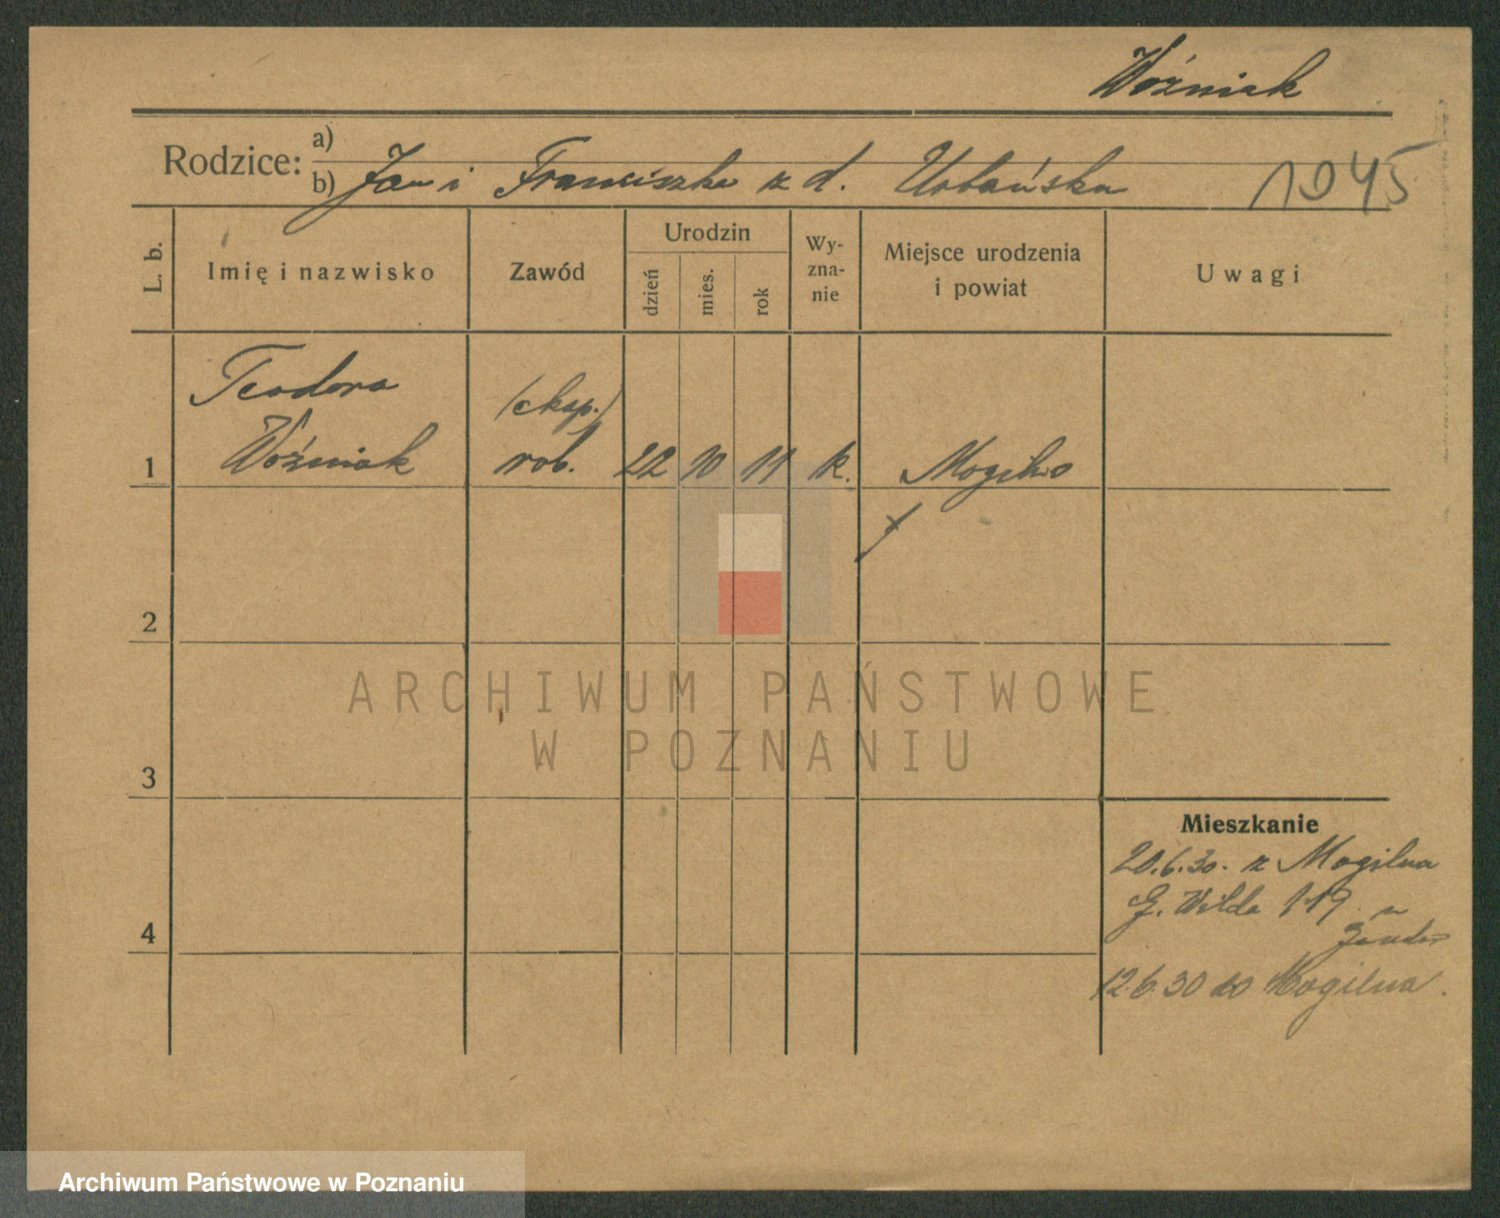 Woźniak
Rodzice: a)
b) Jan i Franciszka z d. Urbańska
1945
L. b.
Imię i nazwisko
Zawód
Urodzin
dzień
mies.
rok
Wy-
zna-
nie
Miejsce urodzenia
i powiat
Uwagi
Teodora
Woźniak
rob.
1
22
10
11
k.
Mogilno
2
3
4
Mieszkanie
20.6.30. z Mogilna
G. Wilda 119
12.6.30 do Mogilna.
ARCHIWUM PAŃSTWOWE
W POZNANIU
Archiwum Państwowe w Poznaniu